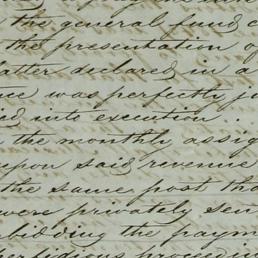 the general fund
the presentation of
later declared in a
was perfectly
ed into execution.
the monthly assig
upon said revenue
the same post tha
were privately sen
bidding the paym
tedious proceedin